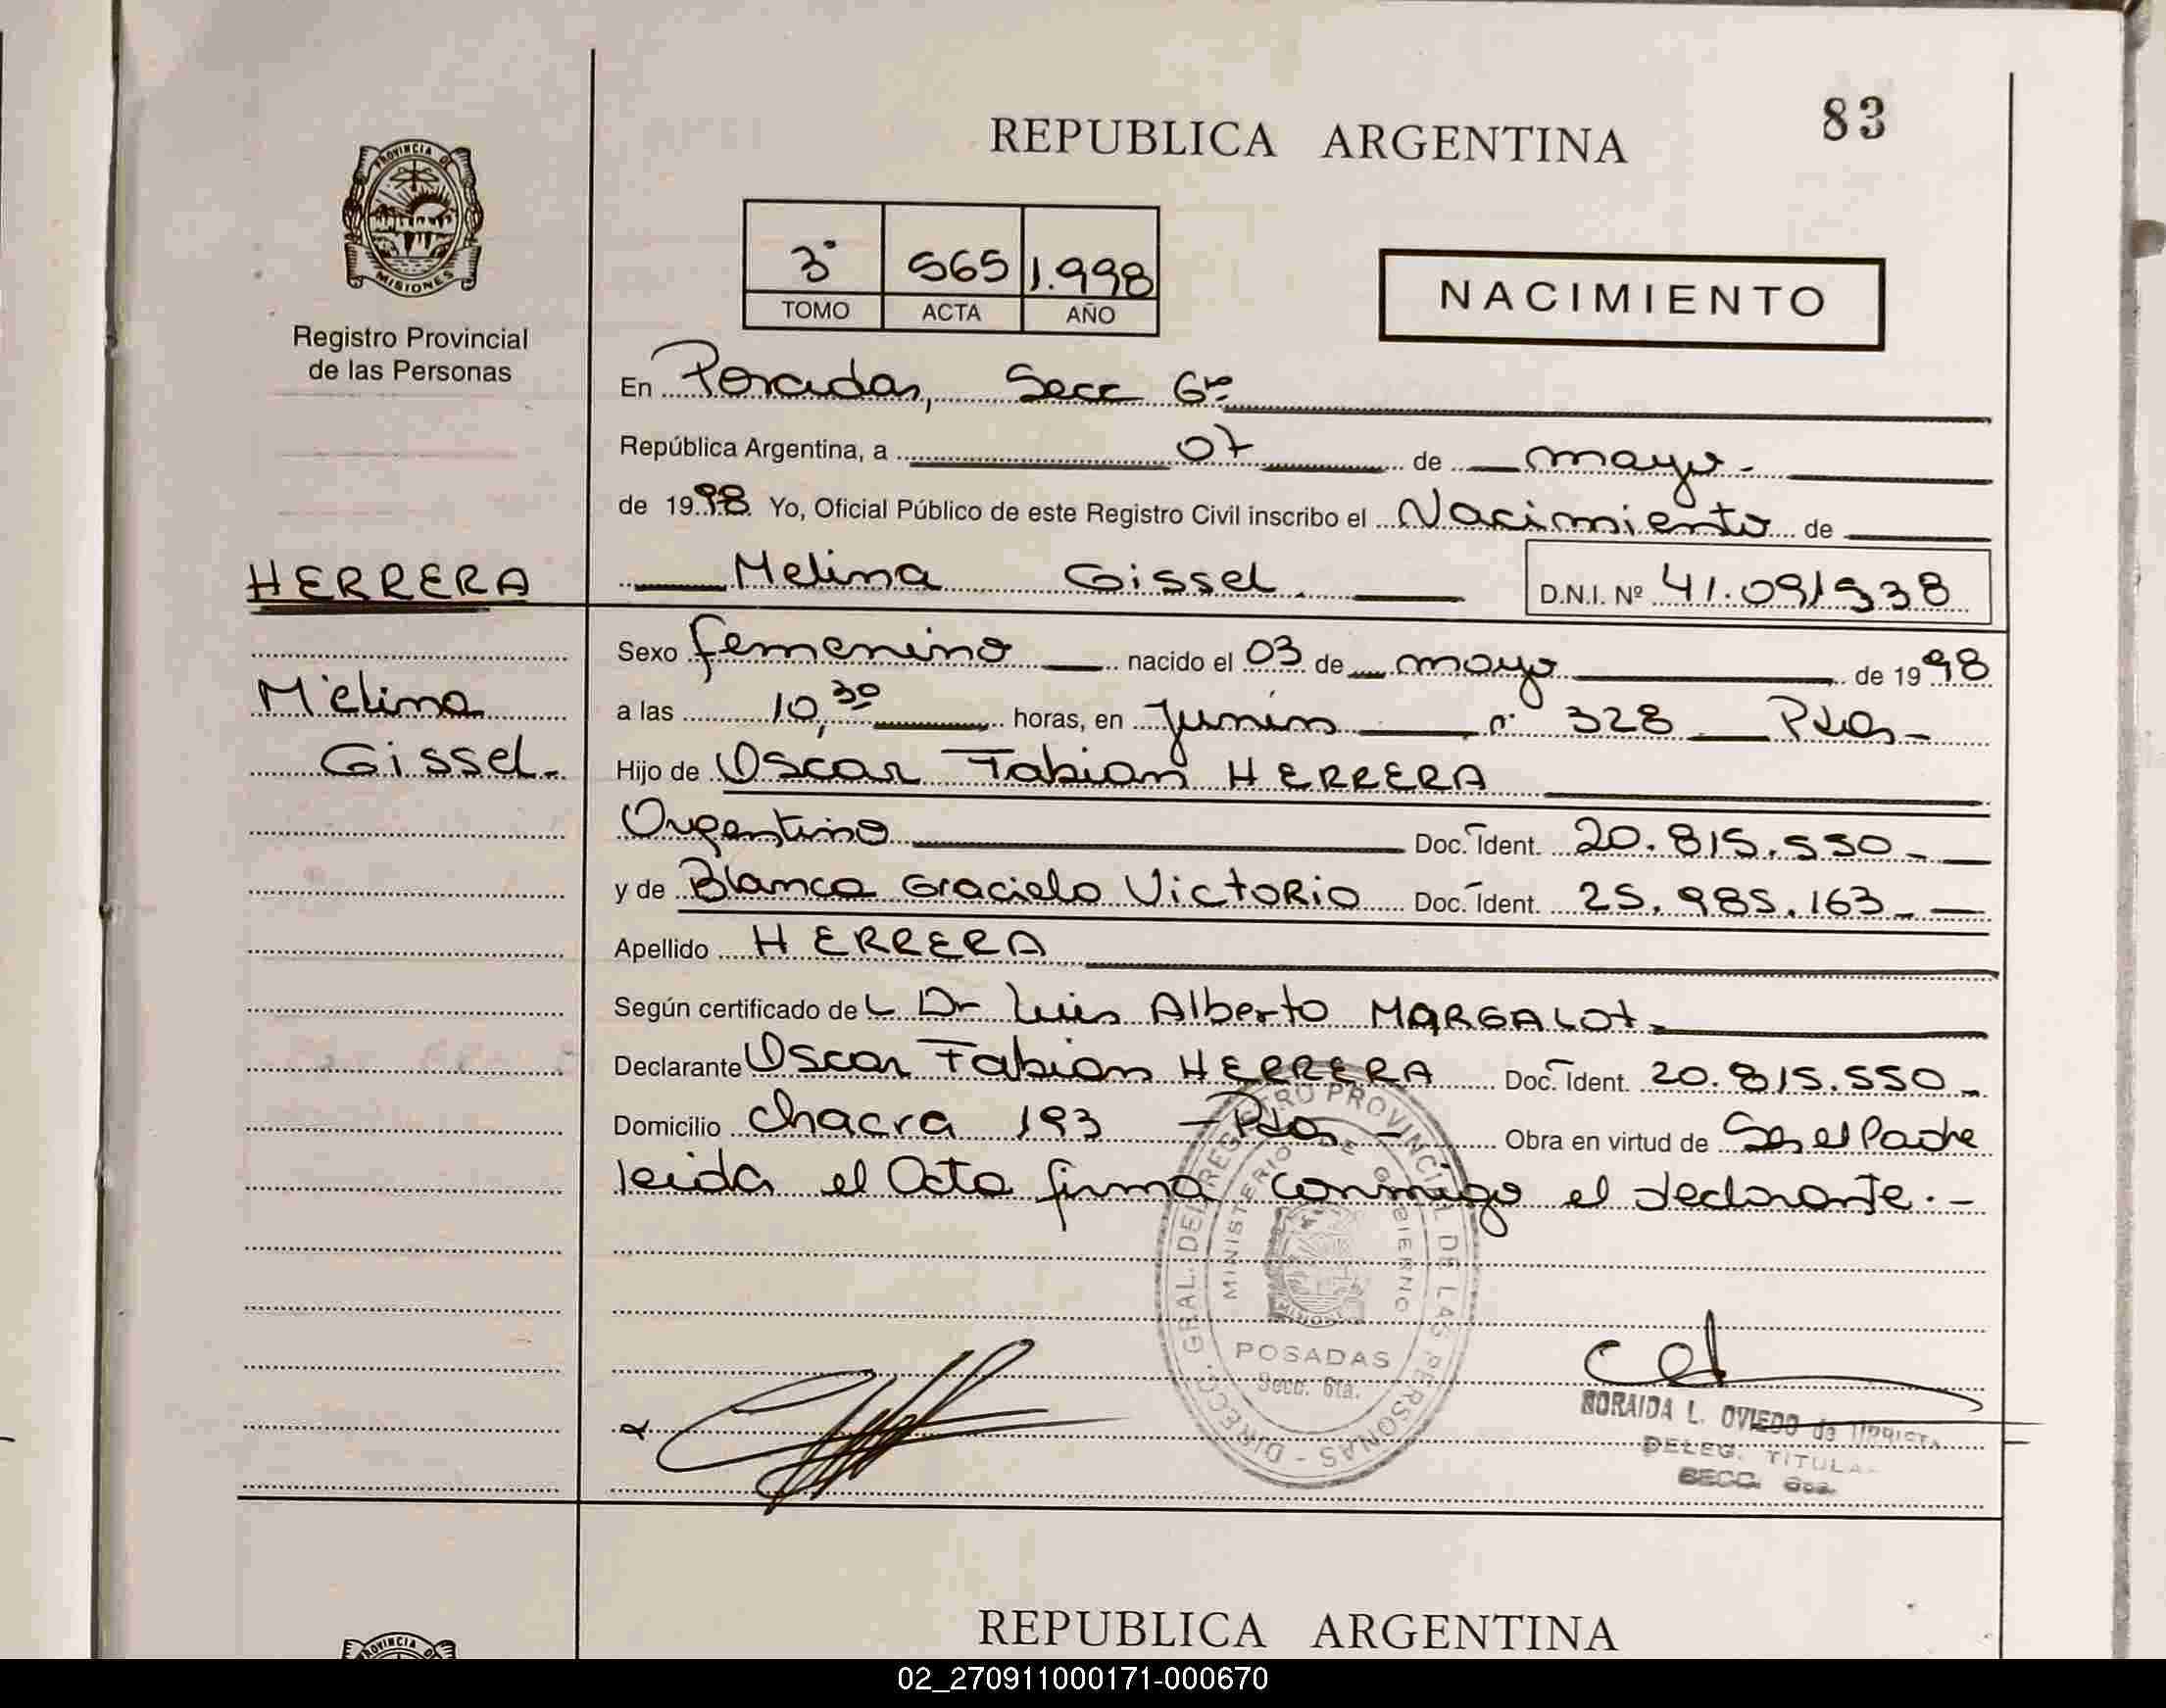 83
REPUBLICA ARGENTINA
PROVINCIA DE
MISIONES
Registro Provincial
de las Personas
3° 565 1.998
TOMO ACTA AÑO
NACIMIENTO
En Posadas, Secc 6ta
República Argentina, a 07 de mayo.
de 1998 Yo, Oficial Público de este Registro Civil inscribo el Nacimiento de
HERRERA
Melina Gissel. D.N.I. Nº 41.091938
Sexo femenino nacido el 03 de mayo de 1998
Melina
a las 10,30 horas, en Junín n° 328 Pdas-
Gissel-
Hijo de Oscar Fabian HERRERA
Argentino Doc. Ident. 20.815.550-
y de Blanca Graciela VictoRio Doc. Ident. 25.985.163-
Apellido HERRERA
Según certificado del Dr Luis Alberto MARGALOt
Declarante Oscar Fabian HERRERA Doc. Ident. 20.815.550-
Domicilio Chacra 193 -Pdas- Obra en virtud de Ser el Padre
leida el Acta firma conmigo el declarante.-
DIRECC. GRAL. DEL REGISTRO PROVINCIAL DE LAS PERSONAS -
MINISTERIO DE GOBIERNO
MISIONES
POSADAS
Secc. 6ta.
NORAIDA L. OVIEDO de
DELEG. TITULAR
SECC. 6ta.
REPUBLICA ARGENTINA
PROVINCIA
02_270911000171-000670